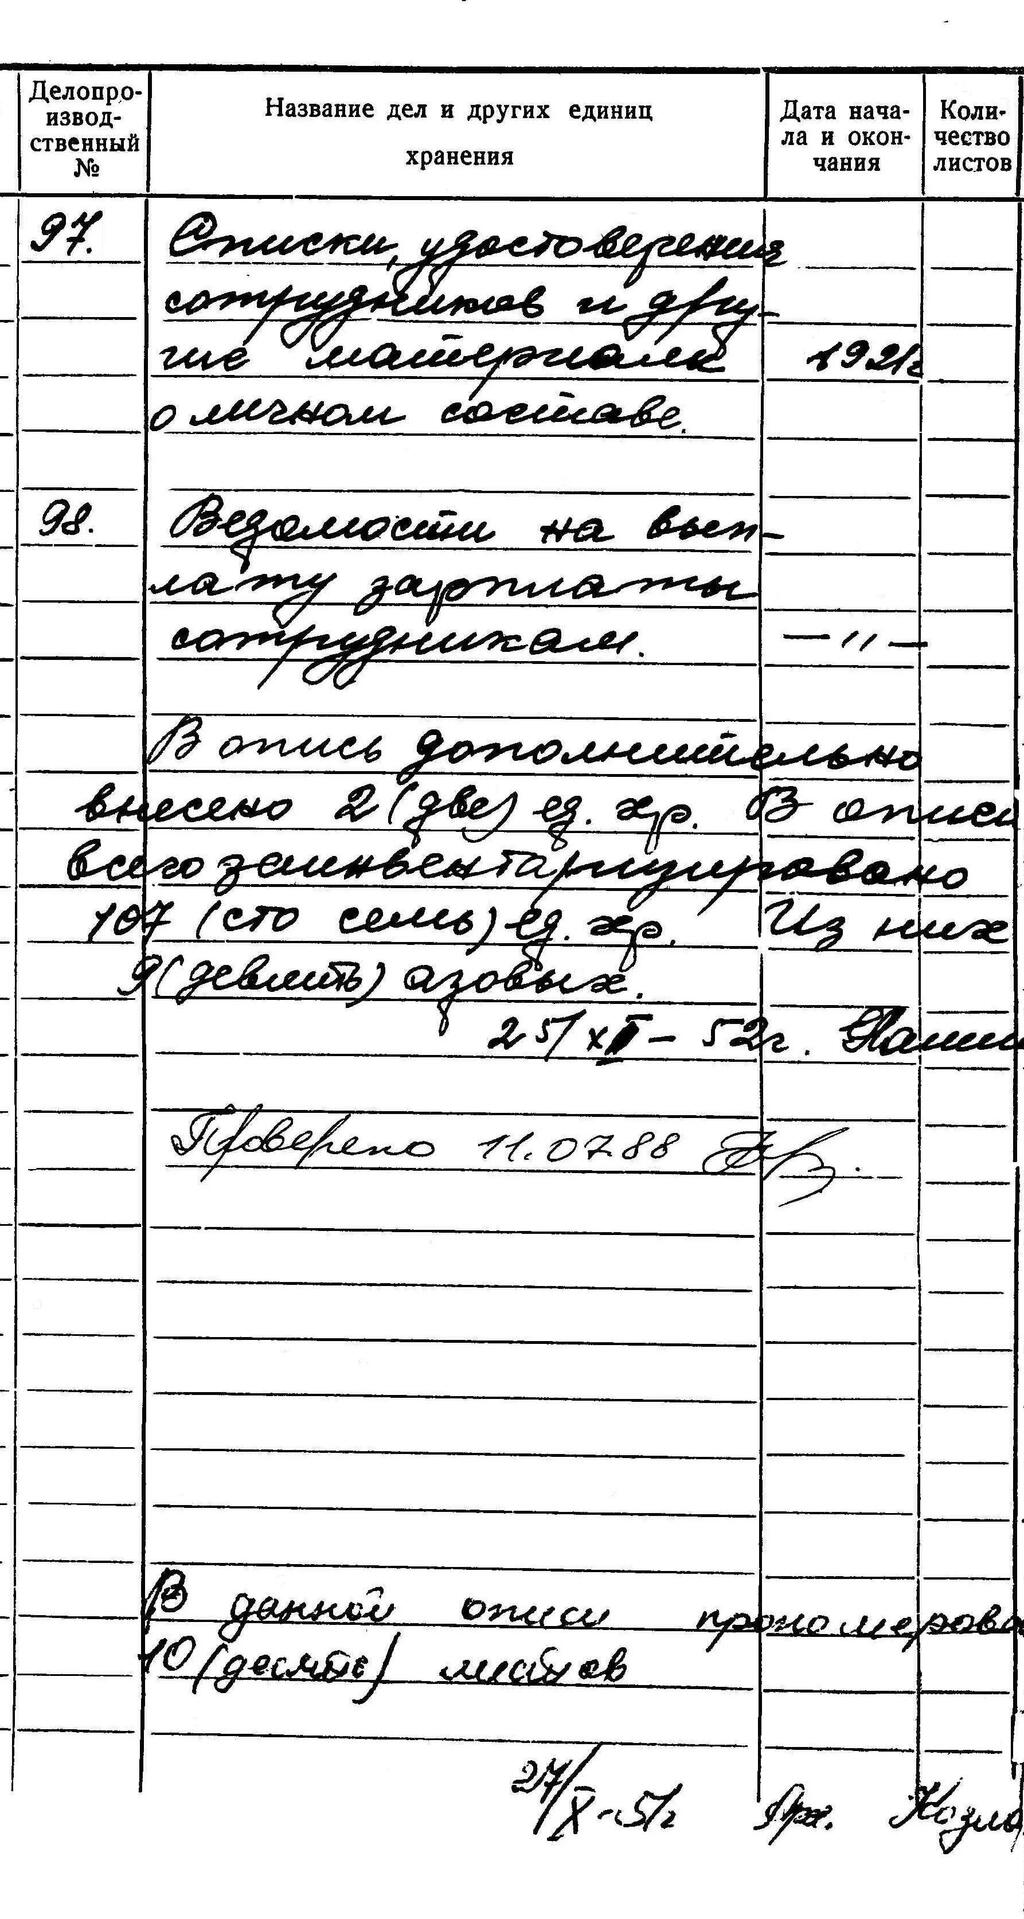 Делопро-
извод-
ственный
№
Название дел и других единиц
хранения
Дата нача-
ла и окон-
чания
Коли-
чество
листов
97. Списки, удостоверения
сотрудников и дру-
гие материалы 1921г
о личном составе.
98. Ведомости на вып-
лату зарплаты
сотрудникам. — " —
В опись дополнительно
внесено 2 (две) ед. хр. В описи
всего заинвентаризировано
107 (сто семь) ед. хр. Из них
9 (девять) азовых.
25/XII – 52г.
Проверено 11.07.88
В данной описи прономерова
10 (десять) листов
27/X – 51г Арх. Козло